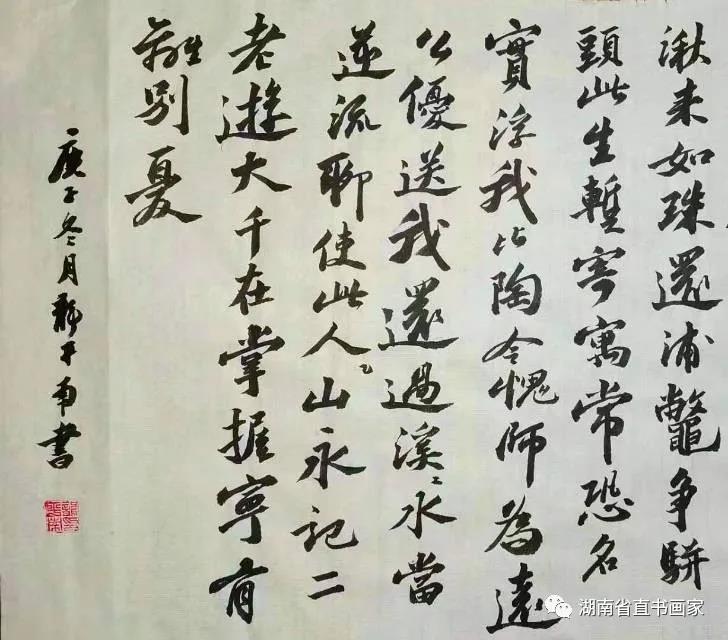 湫来如珠還浦鼈争駢
頭此生暫寄寓常恐名
實浮我比陶令愧師為遠
公優送我還過溪〻水當
逆流聊使此人山永記二
老遊大千在掌握寧有
離别憂
庚子冬月書
湖南省直书画家